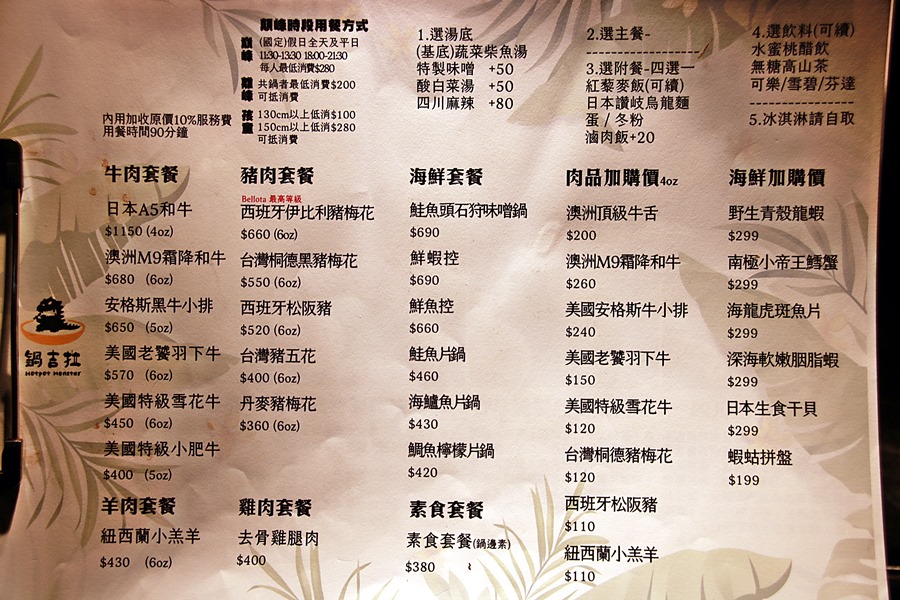 巔峰時段用餐方式
巔峰
(國定)假日全天及平日
11:30-13:30 18:00-21:30
每人最低消費$280
離峰
共鍋者最低消費$200
可抵消費
孩童
130cm以上低消$100
150cm以上低消$280
可抵消費
內用加收原價10%服務費
用餐時間90分鐘
1.選湯底
(基底)蔬菜柴魚湯
特製味噌 +50
酸白菜湯 +50
四川麻辣 +80
2.選主餐-
3.選附餐-四選一
紅藜麥飯(可續)
日本讚岐烏龍麵
蛋 / 冬粉
滷肉飯+20
4.選飲料(可續)
水蜜桃醋飲
無糖高山茶
可樂/雪碧/芬達
5.冰淇淋請自取
牛肉套餐
日本A5和牛
$1150 (4oz)
澳洲M9霜降和牛
$680 (6oz)
安格斯黑牛小排
$650 (5oz)
美國老饕羽下牛
$570 (6oz)
美國特級雪花牛
$450 (6oz)
美國特級小肥牛
$400 (5oz)
羊肉套餐
紐西蘭小羔羊
$430 (6oz)
豬肉套餐
Bellota 最高等級
西班牙伊比利豬梅花
$660 (6oz)
台灣桐德黑豬梅花
$550 (6oz)
西班牙松阪豬
$520 (6oz)
台灣豬五花
$400 (6oz)
丹麥豬梅花
$360 (6oz)
雞肉套餐
去骨雞腿肉
$400
海鮮套餐
鮭魚頭石狩味噌鍋
$690
鮮蝦控
$690
鮮魚控
$660
鮭魚片鍋
$460
海鱸魚片鍋
$430
鯛魚檸檬片鍋
$420
素食套餐
素食套餐(鍋邊素)
$380
肉品加購價4oz
澳洲頂級牛舌
$200
澳洲M9霜降和牛
$260
美國安格斯牛小排
$240
美國老饕羽下牛
$150
美國特級雪花牛
$120
台灣桐德豬梅花
$120
西班牙松阪豬
$110
紐西蘭小羔羊
$110
海鮮加購價
野生青殼龍蝦
$299
南極小帝王鱈蟹
$299
海龍虎斑魚片
$299
深海軟嫩胭脂蝦
$299
日本生食干貝
$299
蝦蛄拼盤
$199
鍋吉拉
Hotpot Monster